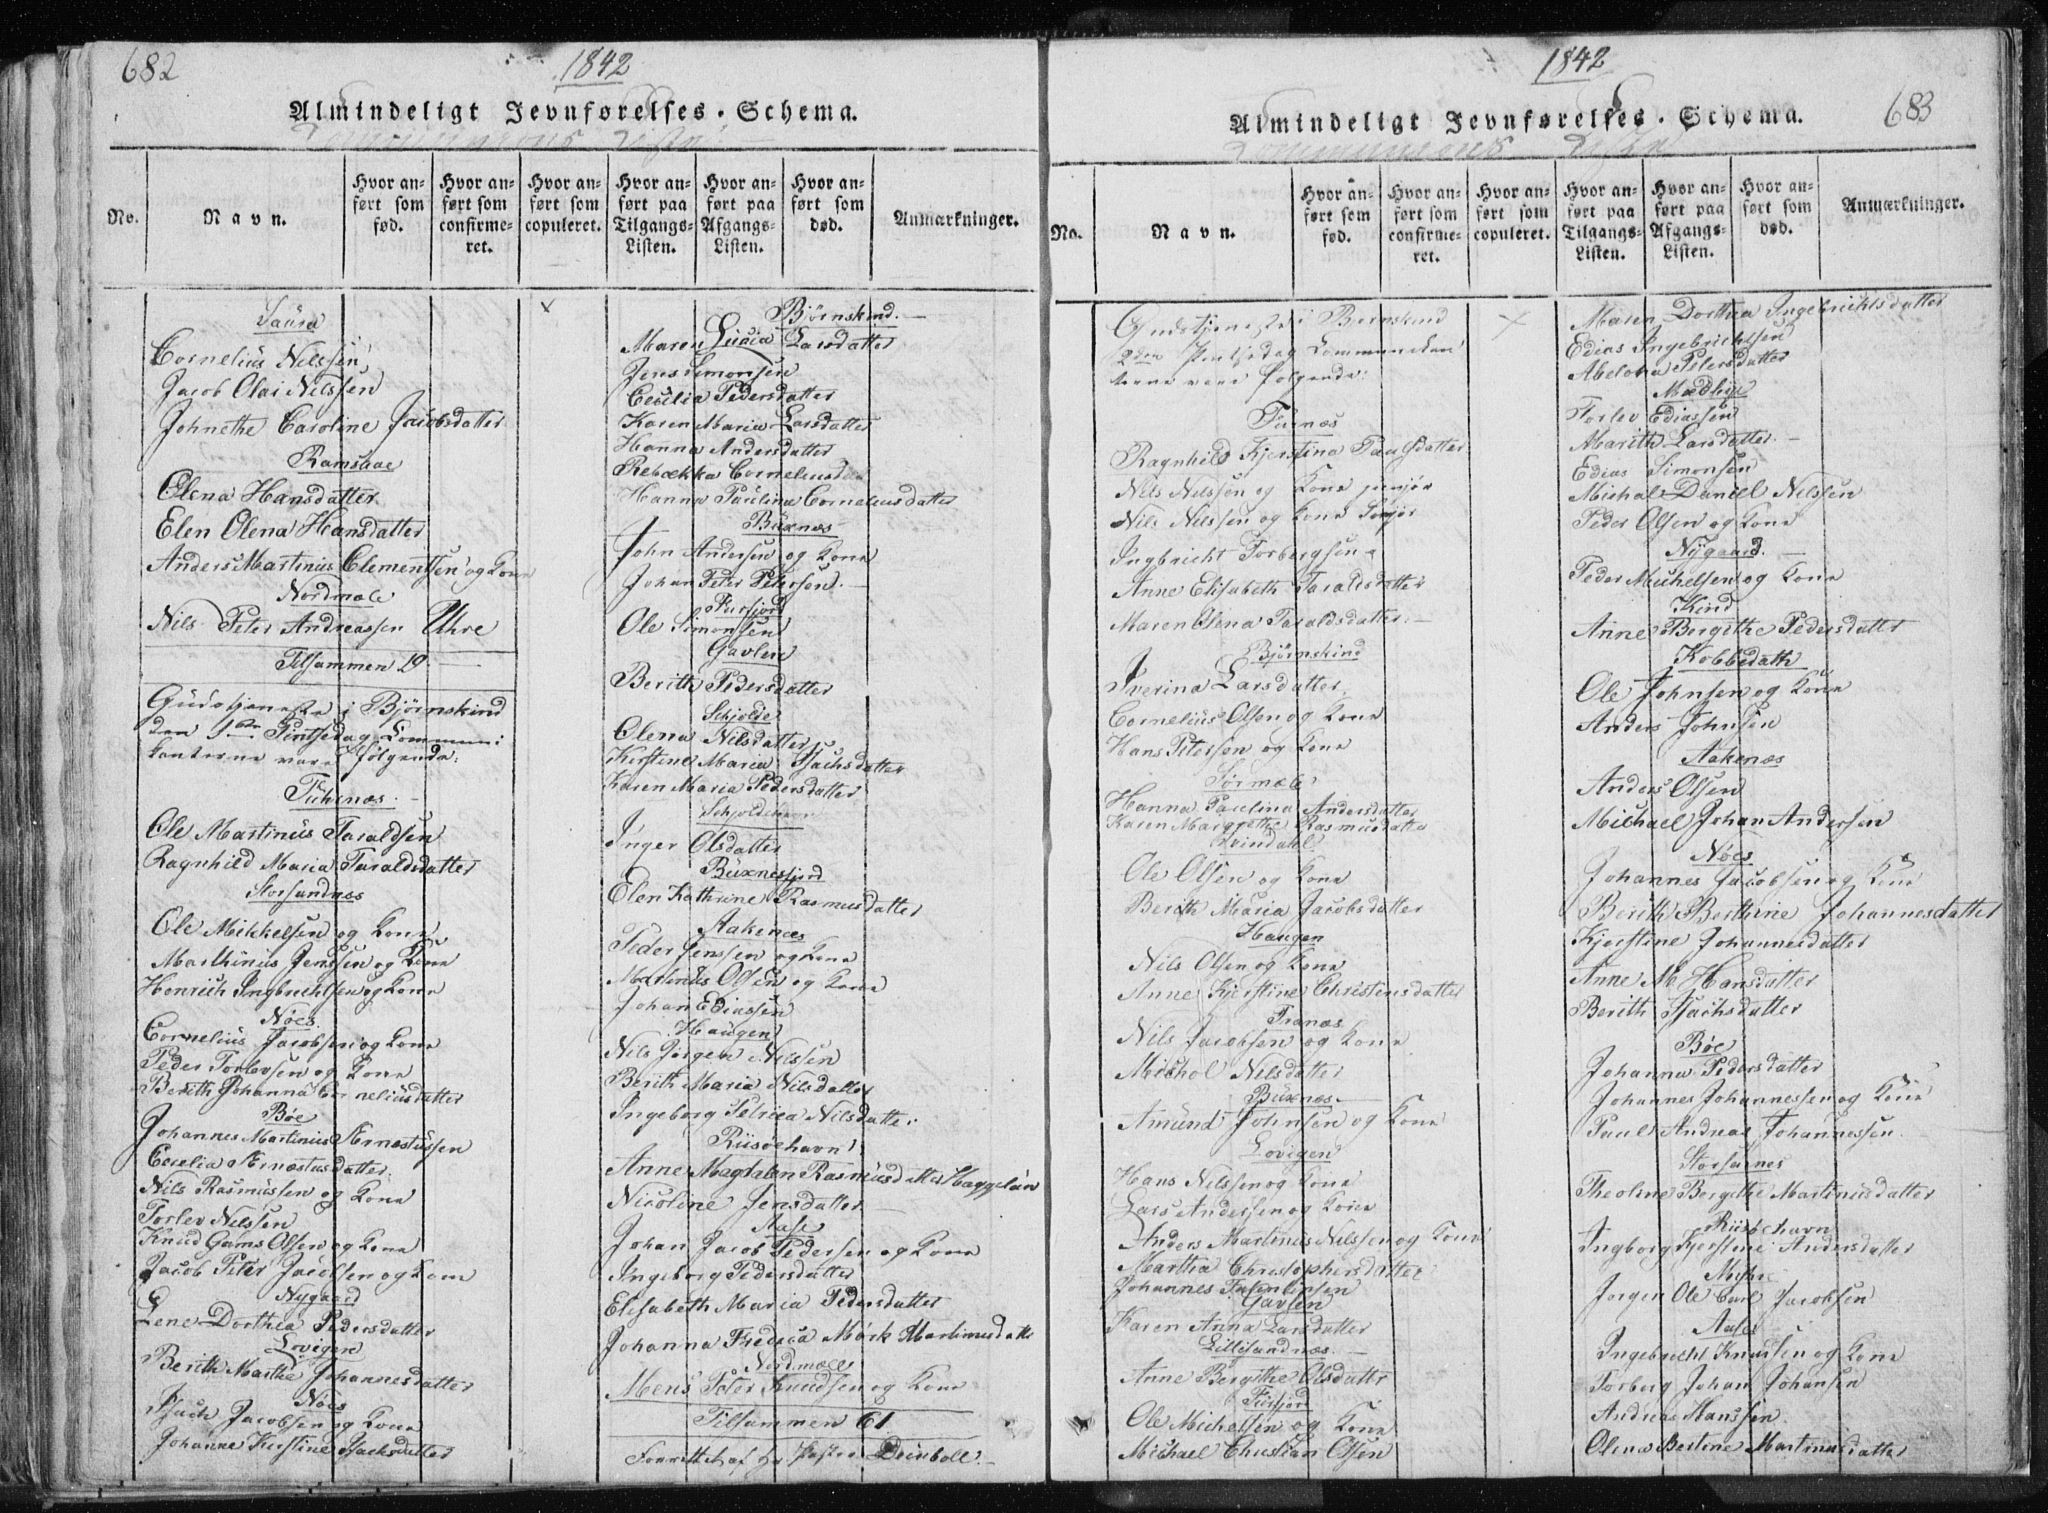 682
1842
Almindeligt Jevnførelses-Schema.
Communions Liste
No.
Navn.
Hvor anført som fød.
Hvor anført som confirmeret.
Hvor anført som copuleret.
Hvor anført paa Tilgangs-Listen.
Hvor anført paa Afgangs-Listen.
Hvor anført som død.
Anmærkninger.
Saura
Cornelius Nilssen
Jacob Olai Nilssen
Johnethe Caroline Jacobsdatter
Ramsaae
Elena Hansdatter
Elen Olena Hansdatter
Anders Martinus Clementsen og Kone
Nordmele
Nils Peter Andreassen Uhre
Tilsammen 19
Gudstjeneste i Bjørnskind
den 1ste Pintsedag Communi:
kanterne vare følgende:
Fuhrnæs
Ole Martinus Taraldsen
Ragnhild Maria Taraldsdatter
Storsandnæs
Ole Mikkelsen og Kone
Marthinus Jenssen og Kone
Henrich Ingbrichtsen og Kone
Nöes
Cornelius Jacobsen og Kone
Peder Torlevsen og Kone
Berith Johanna Corneliusdatter
Böe
Johannes Martinus Arnæstussen
Cecelia Arnæstusdatter
Nils Rasmussen og Kone
Torlev Nilssen
Knud Gams Olsen og Kone
Jacob Peter Jacobsen og Kone
Nygaard
Lene Dorthea Pedersdatter
Lovigen
Berith Marthe Johannesdatter
Nöes
Isach Jacobsen og Kone
Johanne Kerstine Isachsdatter
Bjørnskind
Maren Lucia Larsdatter
Jens Simonsen
Cecilia Pedersdatter
Karen Maria Larsdatter
Hanna Andersdatter
Rebækka Corneliusda
Hanna Paulina Corneliusdatter
Buxnæs
John Andersen og Kone
Johan Peter Petersen
Fursjord
Ole Simonsen
Gavlen
Berith Pedersdatter
Schjolde
Olena Nilsdatter
Kerstine Maria Isachsdatter
Karen Maria Pedersdatter
Inger Olsdatter
Buxnesfjord
Elen Kathrine Rasmusdatter
Aakenæs
Peder Jenssen og Kone
Martinus Olsen og Kone
Johan Ediassen
Haugen
Nils Jörgen Nilssen
Berith Maria Nilsdatter
Ingeborg Petrica Nilsdatter
Riisöehavn
Anne Magdalen Rasmusdatter Haggelun
Nicoline Jensdatter
Aase
Johan Jacob Pedersen og Kone
Ingeborg Pedersdatter
Elisabeth Maria Pedersdatter
Johanna Fredrica Mørk Martinusdatt
Nordmæle
Mens Peter Knudsen og Kone
Tilsammen 61
Forrettet af Hr Pastor Deinboll.
1842
683
Almindeligt Jevnførelses-Schema.
Communions Liste
No.
Navn.
Hvor anført som fød.
Hvor anført som confirmeret.
Hvor anført som copuleret.
Hvor anført paa Tilgangs-Listen.
Hvor anført paa Afgangs-Listen.
Hvor anført som død.
Anmærkninger.
Gudstjeneste i Bjørnskind
2den Pintsedag Communikan
terne vare følgende:
Furnæs
Ragnhild Kjerstina Paulsdatter
Nils Nilssen og Kone junjor
Nils Nilssen og Kone Senjor
Ingbricht Torbergsen
Anne Elisabeth Taraldsdatter
Maren Olena Taraldsdatter
Bjørnskind
Iverina Larsdatter
Cornelius Olsen og Kone
Hans Petersen og Kone
Sørmæle
Hanna Paulina Andersdatter
Karen Margrethe Rasmusdatter
Qvindahl
Ole Olsen og Kone
Berith Maria Jacobsdatter
Haugen
Nils Olsen og Kone
Anne Kjerstine Christensdatter
Tranæs
Nils Jacobsen og Kone
Michol Nilsdatter
Buxnæs
Amund Johnsen og Kone
Lovigen
Hans Nilssen og Kone
Lars Andersen og Kone
Anders Martinus Nilssen og Kone
Martha Christophersdatter
Johannes
Gavlen
Karen Anna Larsdatter
Lillisandnæs
Anne Bergithe Olsdatter
Fursjord
Ole Michelsen og Kone
Michael Christian Olsen
Maren Dorthea Ingebrichtsdatter
Edias Ingebrichtsen
Abelona Petersdatter
Mædbye
Torlev Ediassen
Marith Larsdatter
Edias Simonsen
Michal Daniel Nilssen
Peder Olsen og Kone
Nygaard
Peder Michelsen og Kone
Kind
Anne Bergithe Pedersdatter
Kobbedath
Ole Johnsen og Kone
Anders Johnsen
Aakenæs
Anders Olsen
Michael Johan Andersen
Nöes
Johannes Jacobsen og Kone
Berith Berthine Johannesdatter
Kjerstine Johannesdatter
Anne M. Hansdatter
Berith Isachsdatter
Böe
Johanna Pedersdatter
Johannes Johannessen og Kone
Paul Andreas Johannessen
Storsannes
Theoline Bergithe Martinusdatter
Riisöehavn
Ingborg Kjerstine Andersdatter
Myhre
Jorgen Ole Carl Jacobsen
Aase
Ingebricht Knudsen og Kone
Torberg Johan Johansen
Andreas Hanssen
Olena Bertine Martinusdatter